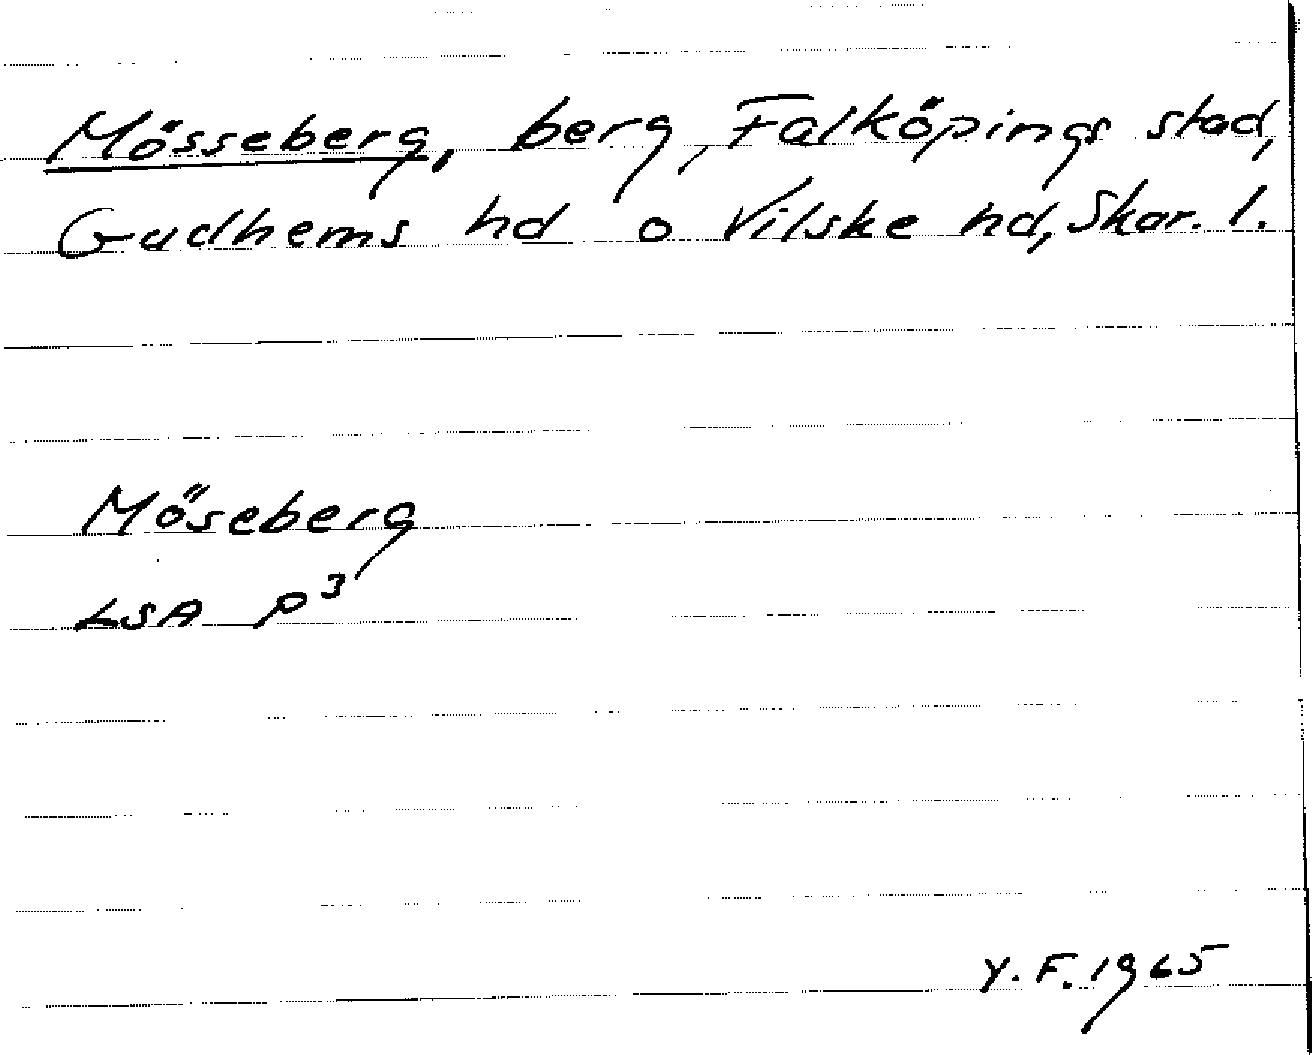 Mösseberg, berg, Falköpings stad,
Gudhems hd o Vilske hd, Skar. l.
Möseberg
LSA P3
Y.F. 1965